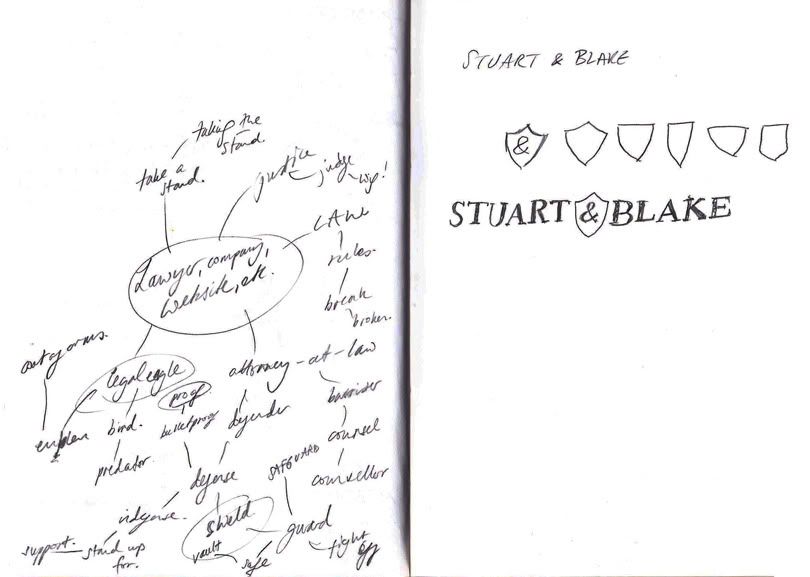 taking the
stand.
take a
stand.
justice
judge
wig!
LAW
rules.
break
broken.
Lawyer, company,
website, etc.
coat of arms.
legal eagle
proof
attorney-at-law
emblem
bulletproof
defender
barrister
predator.
counsel
defense
SAFGUARD
counsellor
indefense.
shield
guard
support.
stand up
for.
vault
safe
fight
STUART & BLAKE
&
STUART & BLAKE